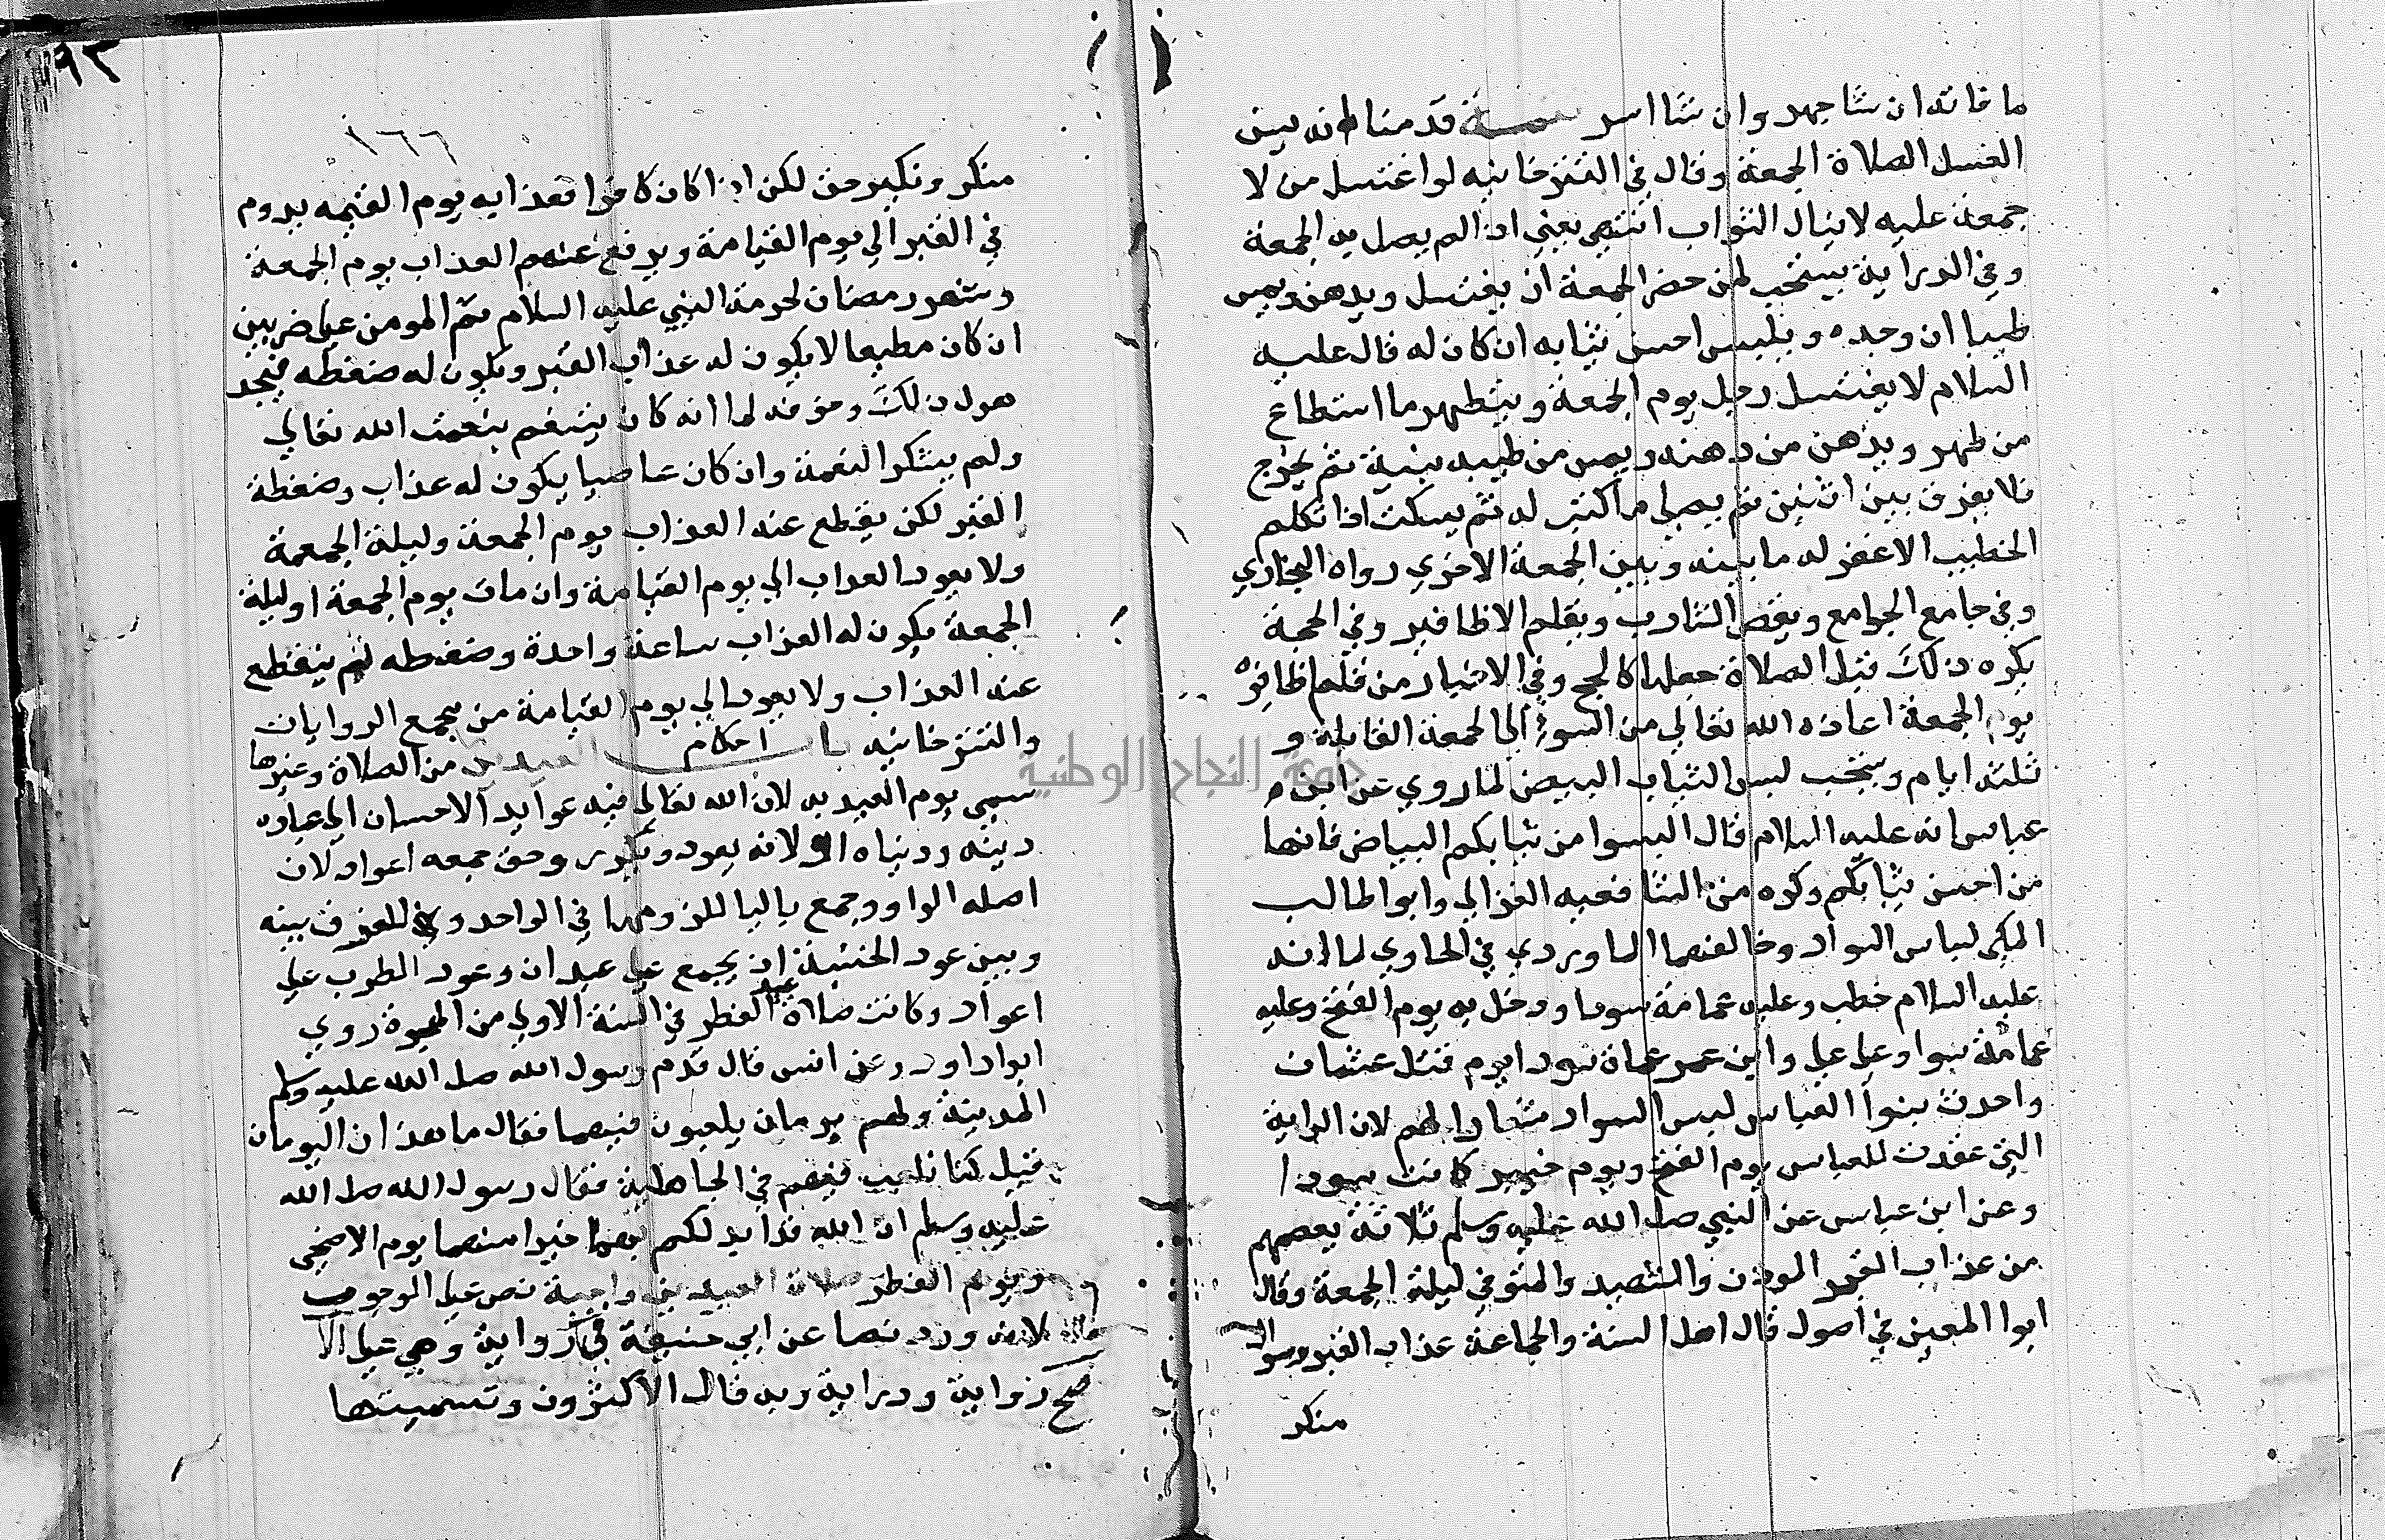 ما فاته ان شا جهر وان شا اسر تتمة قدمنا انه يسن
الغسل الصلاة الجمعة وقال في التتزخانيه لو اغتسل من لا
جمعة عليه لا ينال الثواب انتهي يعني اذا لم يصل به الجمعة
وفي الدراية يستحب لمن حضر الجمعة ان يغتسل ويدهن ويمس
طيبا ان وجده ويلبس احسن ثيابه ان كان له قال عليه
السلام لا يغتسل رجل يوم الجمعة ويتطهر ما استطاع
من طهر ويدهن من دهنه ويمس من طيب بيته ثم يخرج
فلا يفرق بين اثنين ثم يصلي ما كتب له ثم يسكت اذا تكلم
الخطيب الا غفر له ما بينه وبين الجمعة الاخري رواه البخاري
وفي جامع الجوامع ويقص الشارب ويقلم الاظافير وفي الحجة
يكره ذلك قبل الصلاة جعلها كالحج وفي الاختيار من قلم اظافره
يوم الجمعة اعاذه الله تعالي من السوء الي الجمعة القابلة و
ثلثة ايام ويستحب لبس الثياب البيض لما روي عن ابن
عباس انه عليه السلام قال البسوا من ثيابكم البياض فانها
من احسن ثيابكم وكره من الشافعيه الغزالي وابو اطالب
المكي لباس السواد وخالفهما الماوردي في الحاوي لما انه
عليه السلام خطب وعليه عمامة سودا ودخل يوم الفتح وعليه
عمامة سوا وعلي علي وابن عمر عمامة سودا يوم قتل عثمان
واحدث بنوا العباس لبس السواد شعارا لهم لان الراية
التي عقدت للعباس يوم الفتح ويوم حنين كانت سودا
وعن ابن عباس عن النبي صلي الله عليه وسلم ثلاثة يعصمهم
من عذاب القبر الموذن والشهيد والمتوفي ليلة الجمعة وقال
ابوا المعين في اصول قال اهل السنة والجماعة عذاب القبر وسوال
منكر
٩٣
١٦٦
منكر ونكير حق لكن اذا كان كافرا فعذابه يوم القيمه يدوم
في القبر الي يوم القيامة ويرفع عنهم العذاب يوم الجمعة
وشهر رمضان لحرمة النبي عليه السلام ثم المومن علي ضربين
ان كان مطيعا لا يكون له عذاب القبر ويكون له ضغطه فيجد
هول ذلك وخوفه لما انه كان يتنعم بنعمت الله تعالي
ولم يشكر النعمة وان كان عاصيا يكون له عذاب وضغطة
القبر لكن يقطع عنه العذاب يوم الجمعة وليلة الجمعة
ولا يعود العذاب الي يوم القيامة وان مات يوم الجمعة او ليلة
الجمعة يكون له العذاب ساعة واحدة وضغطه ثم ينقطع
عنه العذاب ولا يعود الي يوم القيامة من مجمع الروايات
والتتزخانيه باب احكام العيدين من الصلاة وغيرها
سمي يوم العيد به لان الله تعالي فيه عوايد الاحسان الي عباده
دينه ودنياه او لانه يعود ويتكرر وحق جمعه اعواد لان
اصله الواو وجمع باليا للزومها في الواحد وللفرق بينه
وبين عود الخشبة اذ يجمع علي عيدان وعود الطرب علي
اعواد وكانت صلاة عيد الفطر في السنة الاولي من الهجرة روي
ابوا داود وعن انس قال قدم رسول الله صلي الله عليه وسلم
المدينة ولهم يومان يلعبون فيهما فقال ما هذان اليومان
قيل كنا نلعب فيهم في الجاهلية فقال رسول الله صلي الله
عليه وسلم ان الله قد ابدلكم بهما خيرا منهما يوم الاضحي
ويوم الفطر صلاة العيدين واجبة نص علي الوجوب
لانه ورد نصا عن ابي حنيفة في رواية وهي علي الا
صح رواية ودراية وبه قال الاكثرون وتسميتها
جامعة النجاح الوطنية